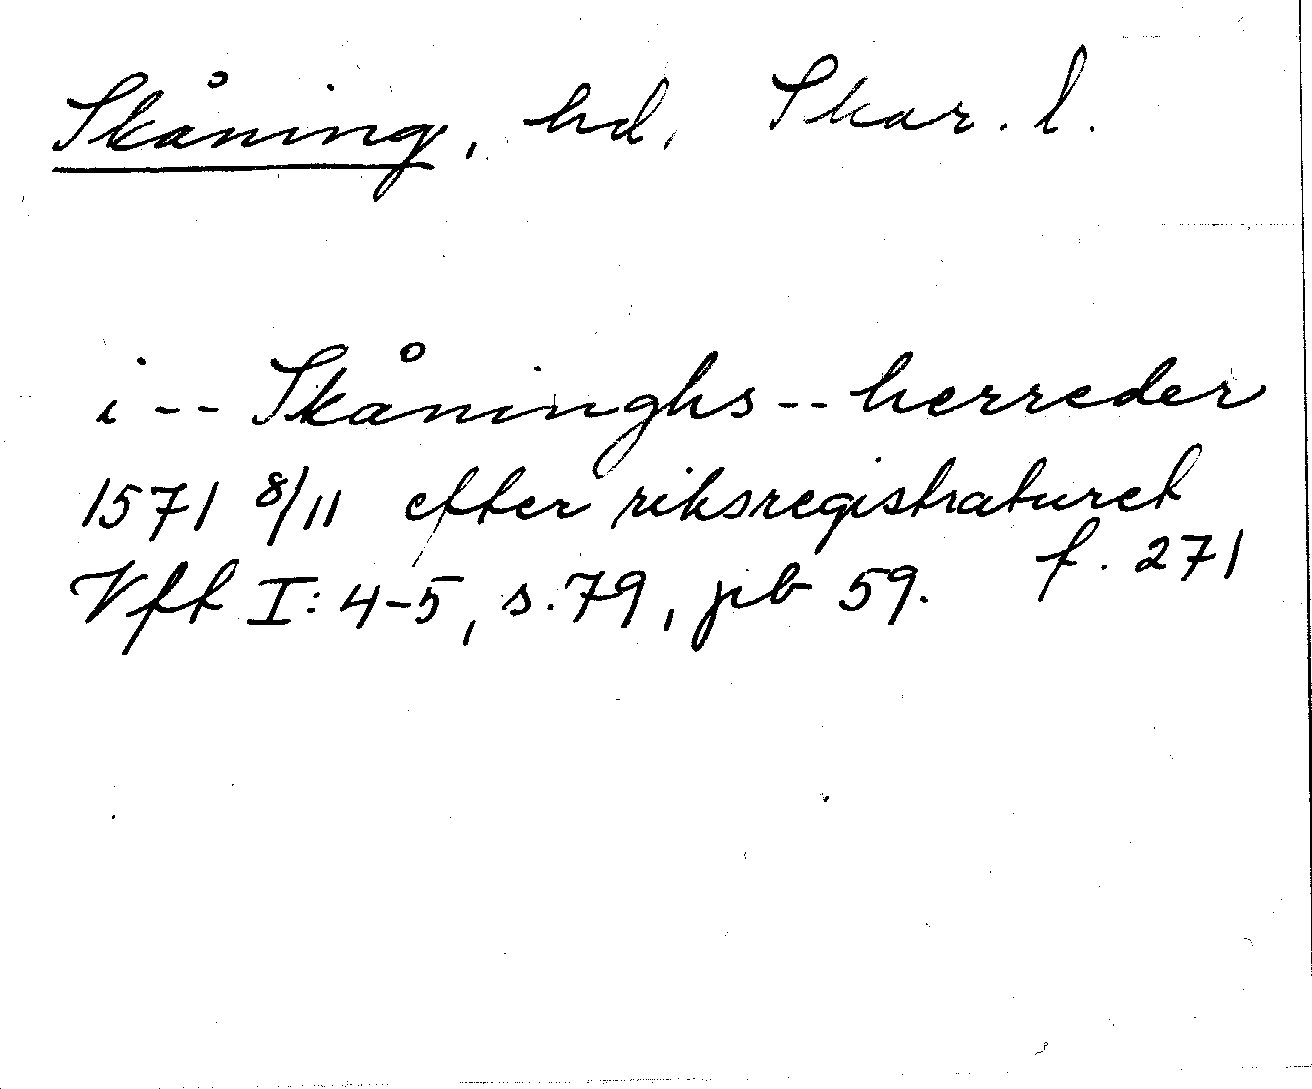 Skåning, hd, Skar. l.
i -- Skåninghs -- herreder
1571 8/11 efter riksregistraturet
f. 271
Vft I: 4-5, s. 79, pb 59.